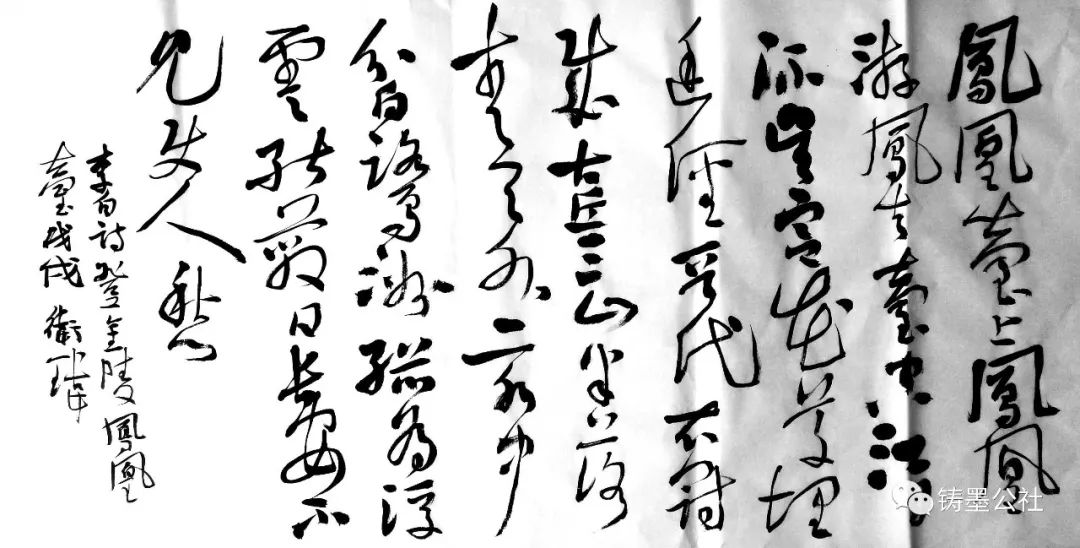 鳳凰臺上鳳凰
游鳳去臺空江自
流吴宮花草埋
幽徑晉代衣冠
成古丘三山半落
青天外二水中
分白鷺洲總為浮
雲能蔽日長安不
見使人愁
李白詩登金陵鳳凰
臺戊戌 衛瑋
铸墨公社